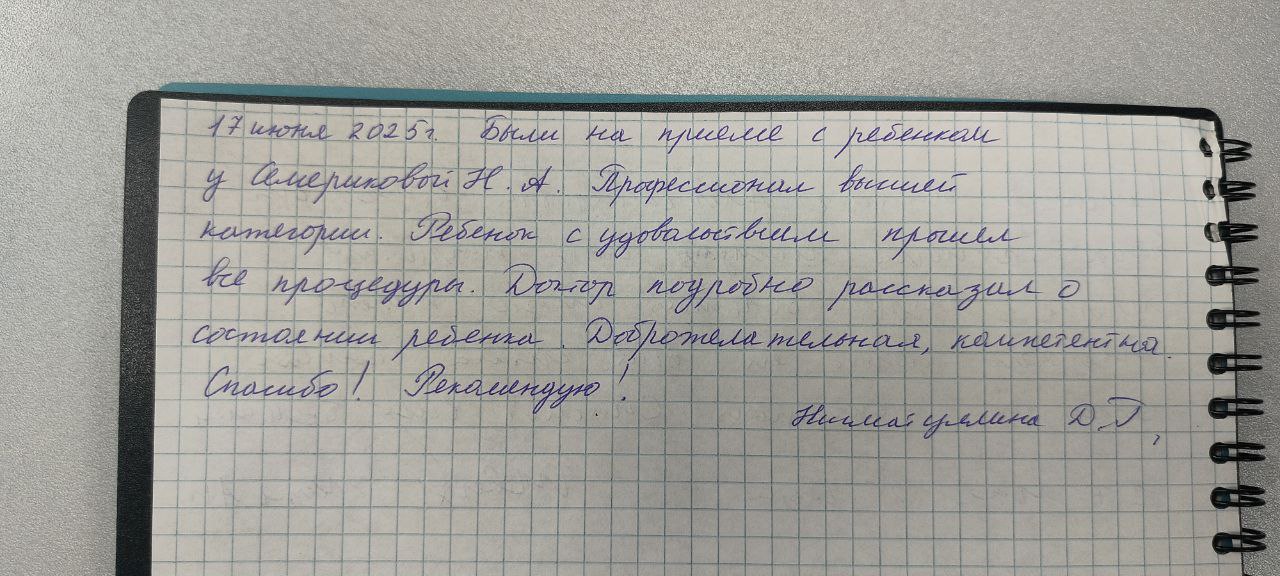 17 июня 2025г. Были на приеме с ребенком
у Семериковой Н. А. Профессионал высшей
категории. Ребенок с удовольствием прошел
все процедуры. Доктор подробно рассказал о
состоянии ребенка. Доброжелательная, компетентна.
Спасибо! Рекомендую!
Нигматуллина Д.Г.